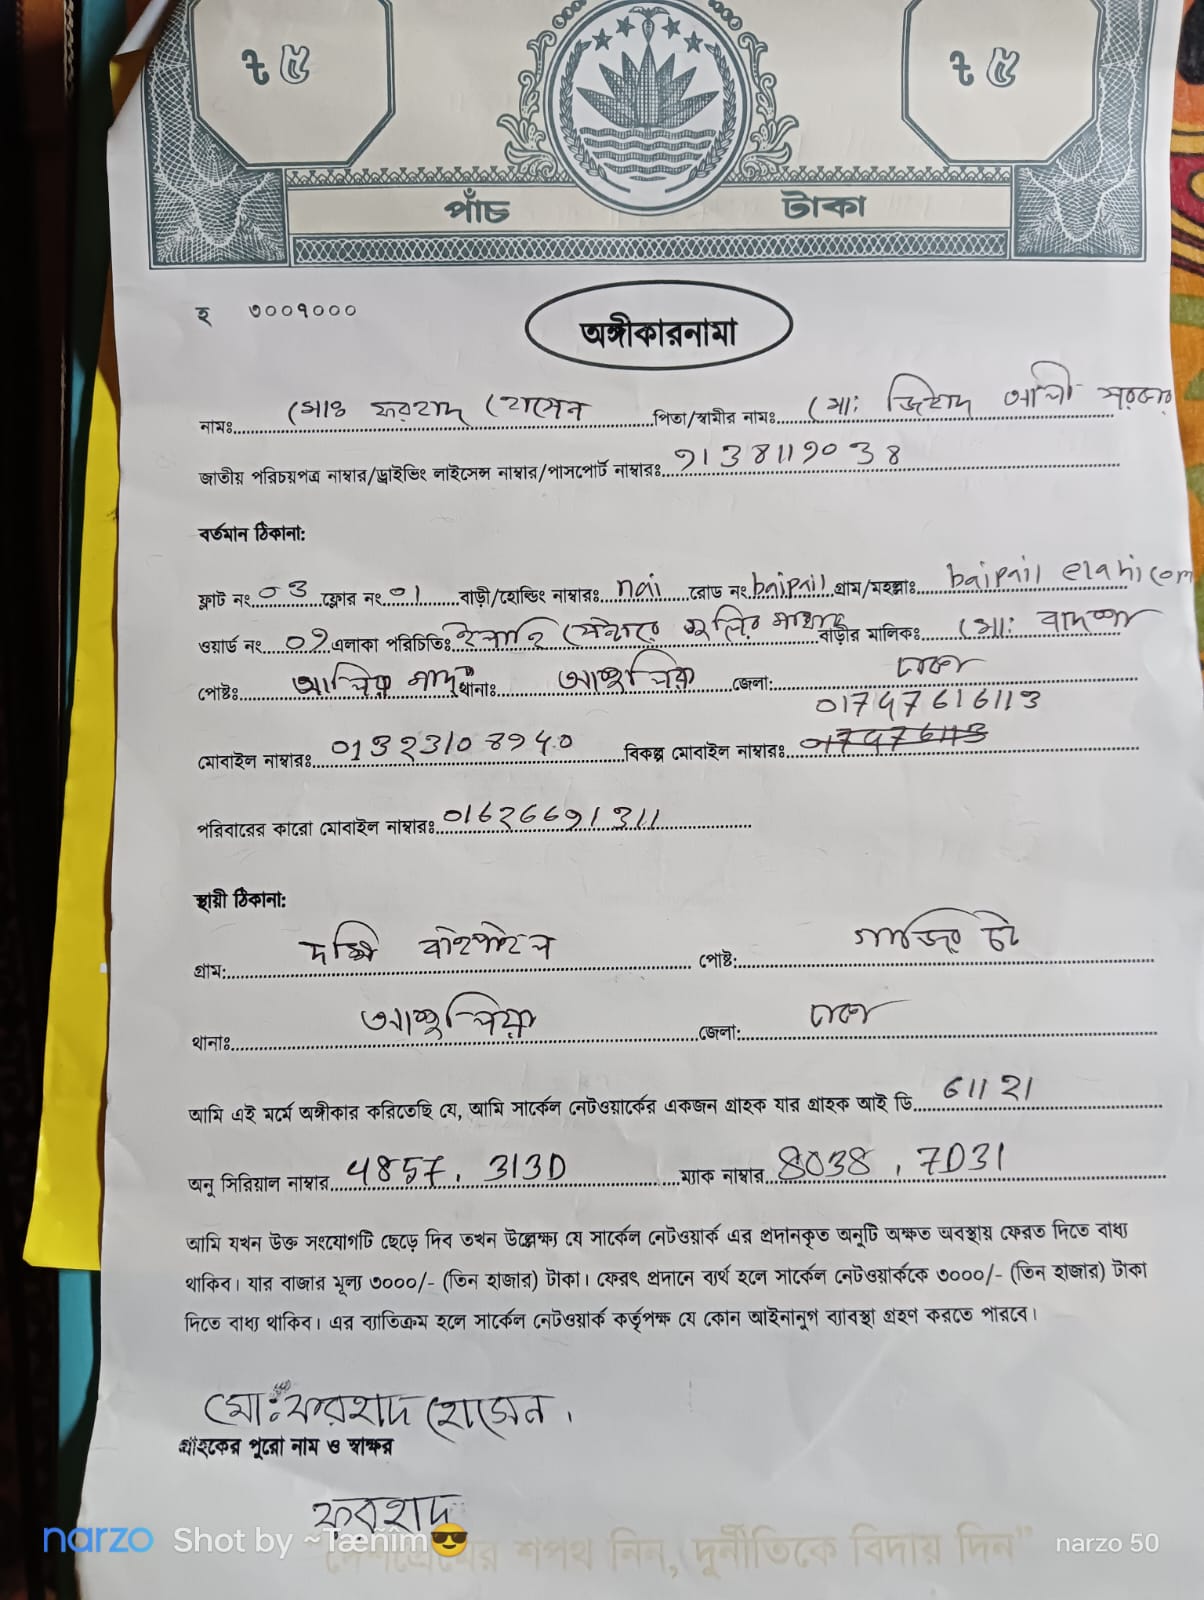 ট ৫ ট ৫
পাঁচ টাকা
হ ৩০০৭০০০
অঙ্গীকারনামা
নামঃ মোঃ ফরহাদ হোসেন পিতা/স্বামীর নামঃ মো: জিহাদ আলী সরকার
জাতীয় পরিচয়পত্র নাম্বার/ড্রাইভিং লাইসেন্স নাম্বার/পাসপোর্ট নাম্বারঃ
বর্তমান ঠিকানা:
ফ্লাট নং ০3 ফ্লোর নং ০1 বাড়ী/হোল্ডিং নাম্বারঃ nai রোড নং baipail গ্রাম/মহল্লাঃ baipail elahi com
ওয়ার্ড নং ০৭ এলাকা পরিচিতিঃ বাড়ীর মালিকঃ মো: বাদশা
পোষ্টঃ থানাঃ আশুলিয়া জেলা: ঢাকা
01747616113
মোবাইল নাম্বারঃ বিকল্প মোবাইল নাম্বারঃ
পরিবারের কারো মোবাইল নাম্বারঃ
স্থায়ী ঠিকানা:
গ্রাম: পোষ্ট: গাজির চট
থানাঃ আশুলিয়া জেলা: ঢাকা
আমি এই মর্মে অঙ্গীকার করিতেছি যে, আমি সার্কেল নেটওয়ার্কের একজন গ্রাহক যার গ্রাহক আই ডি
অনু সিরিয়াল নাম্বার 4857. 313D ম্যাক নাম্বার 8038. 7D31
আমি যখন উক্ত সংযোগটি ছেড়ে দিব তখন উল্লেক্ষ্য যে সার্কেল নেটওয়ার্ক এর প্রদানকৃত অনুটি অক্ষত অবস্থায় ফেরত দিতে বাধ্য
থাকিব। যার বাজার মূল্য ৩০০০/- (তিন হাজার) টাকা। ফেরৎ প্রদানে ব্যর্থ হলে সার্কেল নেটওয়ার্ককে ৩০০০/- (তিন হাজার) টাকা
দিতে বাধ্য থাকিব। এর ব্যাতিক্রম হলে সার্কেল নেটওয়ার্ক কর্তৃপক্ষ যে কোন আইনানুগ ব্যাবস্থা গ্রহণ করতে পারবে।
মো: ফরহাদ হোসেন।
গ্রাহকের পুরো নাম ও স্বাক্ষর
ফরহাদ
narzo Shot by ~Tæñîm😎 narzo 50
দেশপ্রেমের শপথ নিন, দুর্নীতিকে বিদায় দিন"